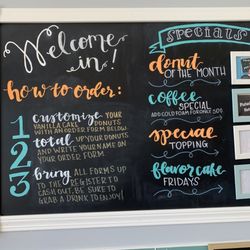 Welcome
in!
how to order:
1 customize YOUR
VANILLA CAKE DONUTS
WITH AN ORDER FORM BELOW
2 total UP YOUR DONUTS
AND WRITE YOUR NAME ON
YOUR ORDER FORM
3 bring ALL FORMS UP
TO THE REGISTER TO
CASH OUT. BE SURE TO
GRAB A DRINK TO ENJOY!
SPECIALS
donut
OF THE MONTH
coffee
SPECIAL
ADD COLD FOAM FOR ONLY .50¢
special
TOPPING
flavor cake
FRIDAYS